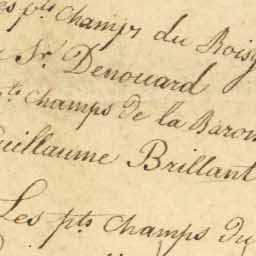 es pts Champs du Rois
Sr. Denouard
ts Champs de la Baron
Guillaume Brillant
Les pts Champs du